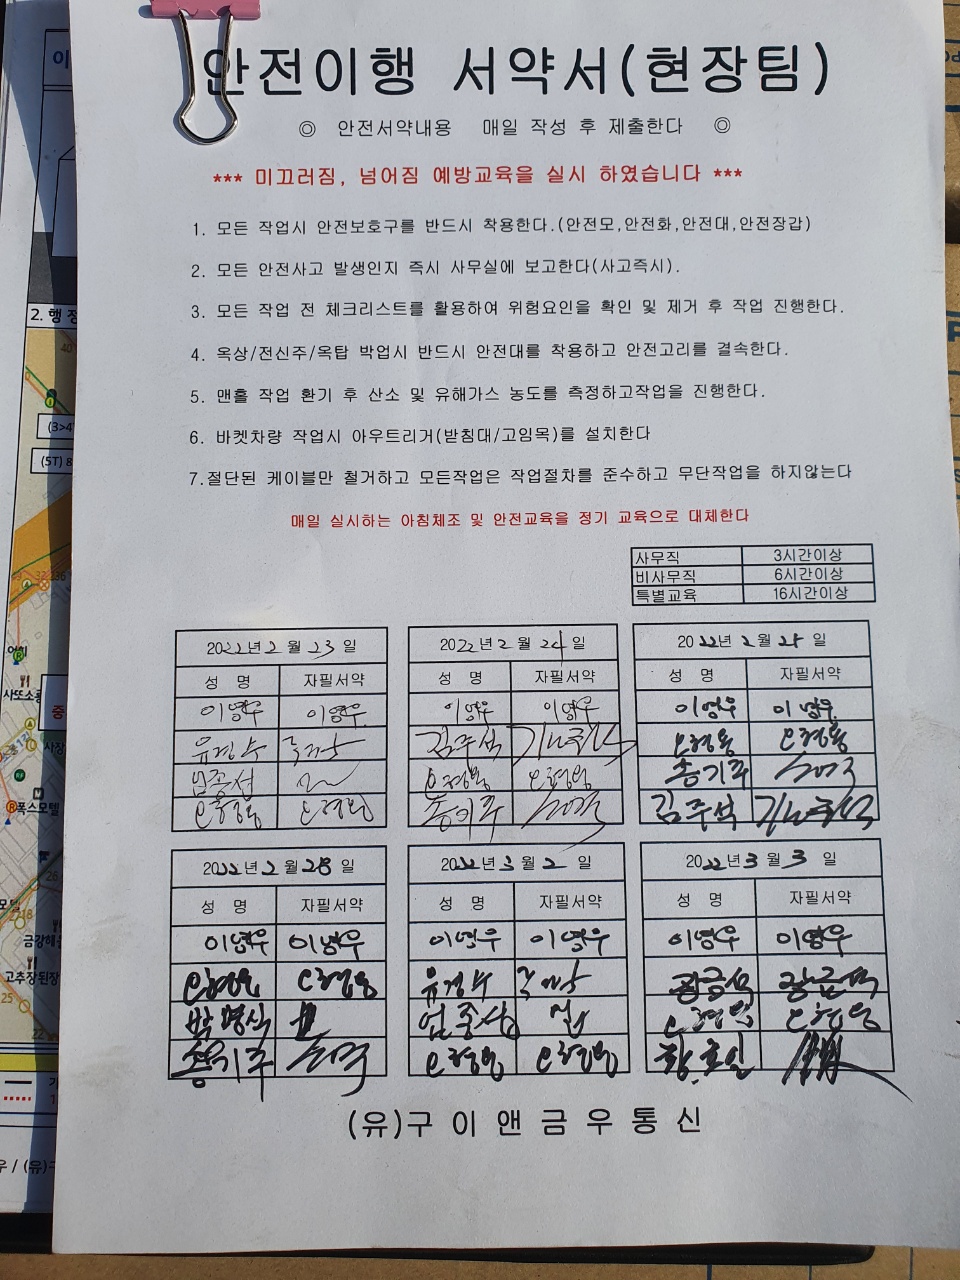 안전이행 서약서(현장팀)
◎ 안전서약내용 매일 작성 후 제출한다 ◎
*** 미끄러짐, 넘어짐 예방교육을 실시 하였습니다 ***
1. 모든 작업시 안전보호구를 반드시 착용한다.(안전모,안전화,안전대,안전장갑)
2. 모든 안전사고 발생인지 즉시 사무실에 보고한다(사고즉시).
3. 모든 작업 전 체크리스트를 활용하여 위험요인을 확인 및 제거 후 작업 진행한다.
4. 옥상/전신주/옥탑 박업시 반드시 안전대를 착용하고 안전고리를 결속한다.
5. 맨홀 작업 환기 후 산소 및 유해가스 농도를 측정하고작업을 진행한다.
6. 바켓차량 작업시 아우트리거(받침대/고임목)를 설치한다
7.절단된 케이블만 철거하고 모든작업은 작업절차를 준수하고 무단작업을 하지않는다
매일 실시하는 아침체조 및 안전교육을 정기 교육으로 대체한다
사무직 3시간이상
비사무직 6시간이상
특별교육 16시간이상
2022년 2월 23일
성 명 자필서약
이영우 이영우
유경수
엄종섭
2022년 2월 24일
성 명 자필서약
이영우 이영우
김주석 김주석
송기주
2022년 2월 25일
성 명 자필서약
이영우 이영우
송기주
김주석 김주석
2022년 2월 28일
성 명 자필서약
이영우 이영우
박명식
송기주
2022년 3월 2일
성 명 자필서약
이영우 이영우
유경수
엄종섭
2022년 3월 3일
성 명 자필서약
이영우 이영우
황호일
(유)구이앤금우통신
2. 행정
(3>4
(5T) 8
사또소
폭스모텔
금강해
고추장된장
25